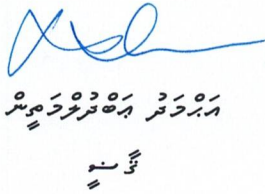 އަޙްމަދު ޢަބްދުލްމަތީން
ޤާޟީ